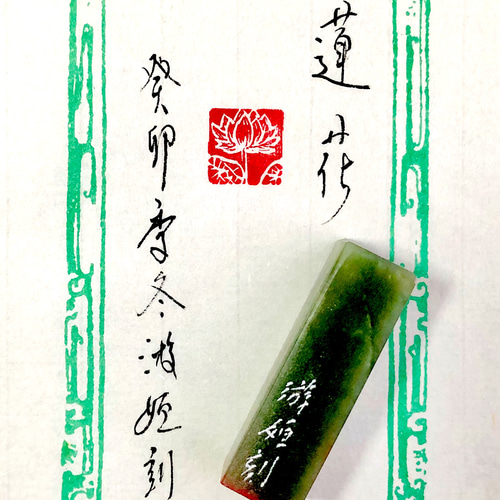 蓮花
癸卯季冬游姮刻
游姮刻